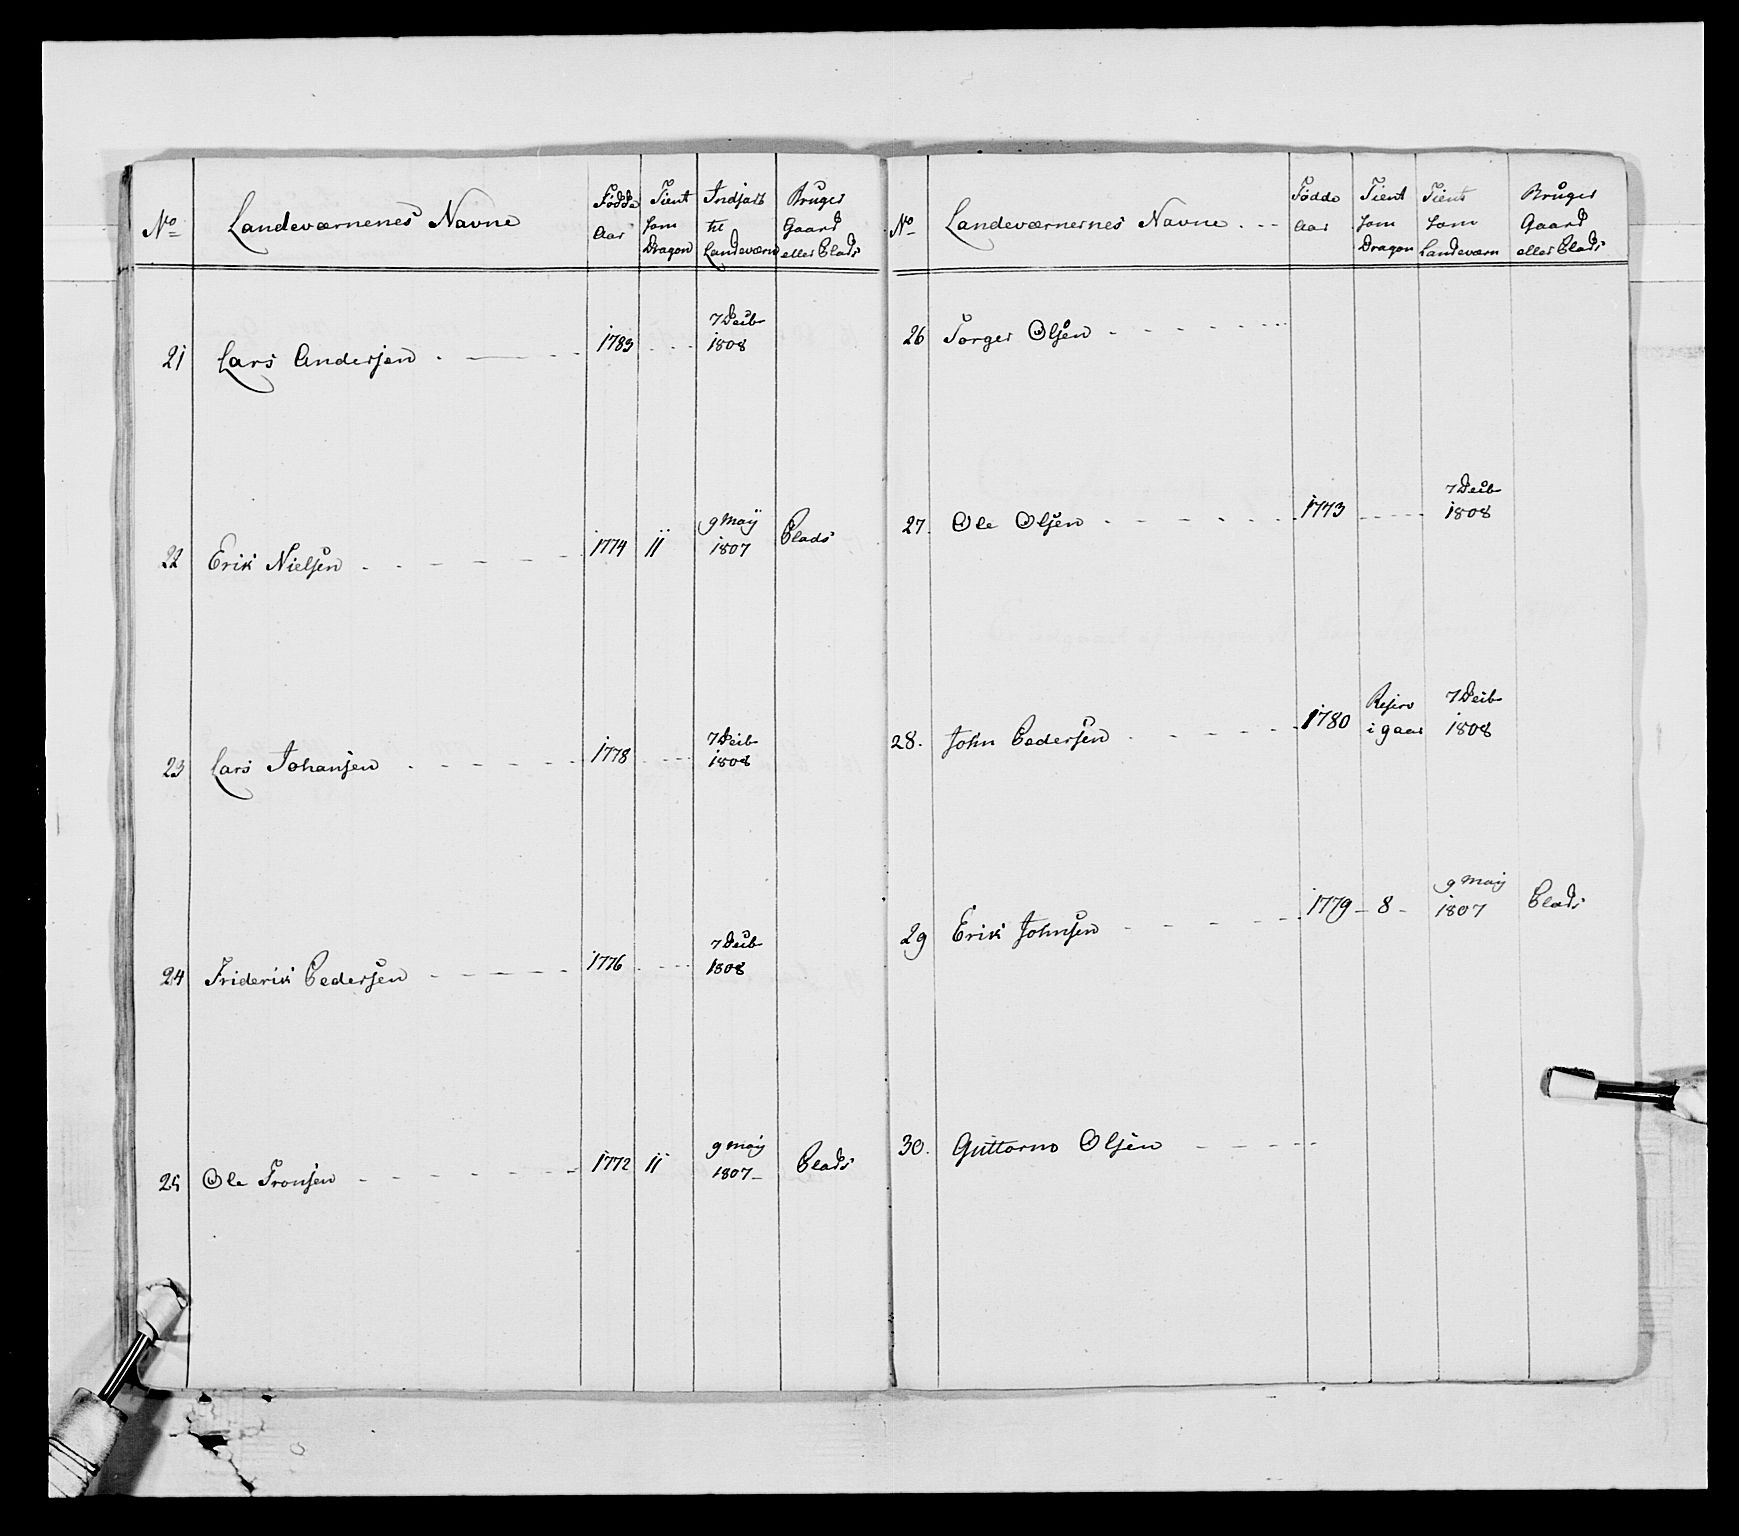 No Landeværnenes Navne Fødde Aar Tient som Dragon Indsat til Landeværn Bruger Gaard eller Plads
21 Lars Andersen 1783 7 Deib 1808
22 Erik Nielsen 1774 11 9 Maij 1807 Plads
23 Lars Johansen 1778 7 Deib 1808
24 Friderik Pedersen 1776 7 Deib 1808
25 Ole Tronsen 1772 11 9 Maij 1807 Plads
No Landeværnernes Navne Fødde Aar Tient som Dragon Tient som Landeværn Bruger Gaard eller Plads
26 Torger Olsen
27. Ole Olsen 1773 7 Deib 1808
28. John Pedersen 1780 Reserv i gaar 7 Deib 1808
29 Erik Johnsen 1779 8 9 Maij 1807 Plads
30. Guttorm Olsen